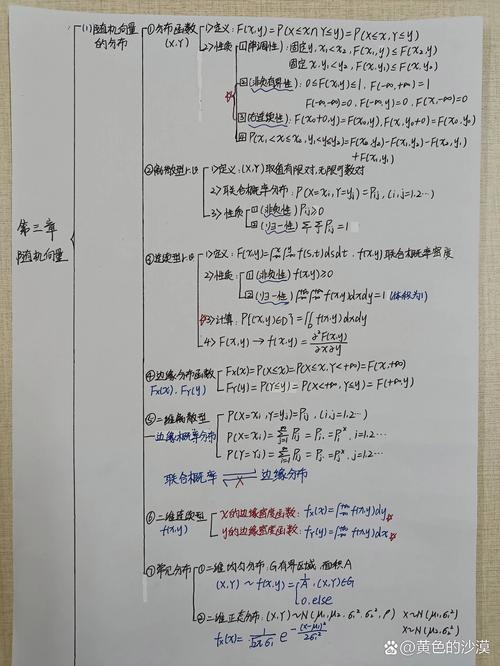 第三章
随机向量
(1)随机向量
的分布
①分布函数
(X,Y)
1>定义: F(x,y)=P(X≤x∩Y≤y)=P(X≤x,Y≤y)
2>性质
①(单调性): 固定y, x₁<x₂, F(x₁,y)≤F(x₂,y)
固定x, y₁<y₂, F(x,y₁)≤F(x,y₂)
②(非负有界性): 0≤F(x,y)≤1, F(-∞,+∞)=1
F(-∞,-∞)=0, F(-∞,y)=0, F(x,-∞)=0
③(右连续性): F(x₀+0,y)=F(x₀,y), F(x,y₀+0)=F(x,y₀)
④P(x₁<X≤x₂, y₁<y≤y₂)=F(x₂,y₂)-F(x₁,y₂)-F(x₂,y₁)
+F(x₁,y₁)
②离散型r.v
1>定义: (X,Y)取值有限对,无限可数对
2>联合概率分布: P(X=xᵢ,Y=yⱼ)=Pᵢⱼ (i,j=1,2…)
3>性质
①(非负性) Pᵢⱼ≥0
②(归一性) ΣΣPᵢⱼ=1
③连续型r.v
1>定义: F(x,y)=∫ˣ₋∞∫ʸ₋∞f(s,t)dsdt, f(x,y)联合概率密度
2>性质
①(非负性) f(x,y)≥0
②(归一性)∫⁺∞₋∞∫⁺∞₋∞f(x,y)dxdy=1 (体积为1)
3>计算: P{(x,y)∈D}=∬_D f(x,y)dxdy
4>F(x,y)→f(x,y)=∂²F(x,y)/∂x∂y
④边缘分布函数
Fx(x), FY(y)
Fx(x)=P(X≤x)=P(X≤x,Y<+∞)=F(x,+∞)
FY(y)=P(Y≤y)=P(X<+∞,Y≤y)=F(+∞,y)
⑤二维离散型
边缘概率分布
P(X=xᵢ,Y=yⱼ)=Pᵢⱼ, (i,j=1,2…)
P(X=xᵢ)=ΣPᵢⱼ=Pᵢ.=Pᵢˣ, i=1,2…
P(Y=Yⱼ)=ΣPᵢⱼ=P.ⱼ=Pⱼʸ, j=1,2…
联合概率 ⇌ × 边缘分布
⑥二维连续型
f(x,y)
X的边缘密度函数: fx(x)=∫⁺∞₋∞f(x,y)dy
Y的边缘密度函数: fY(y)=∫⁺∞₋∞f(x,y)dx
⑦常见分布
①二维均匀分布: G有界区域,面积A
(X,Y)~f(x,y)={1/A, (X,Y)∈G
0, else
②二维正态分布: (X,Y)~N(μ₁,μ₂,σ₁²,σ₂²,ρ) X~N(μ₁,σ₁²)
fx(x)=1/(√2π σ₁) e^(-(x-μ₁)²/2σ₁²) X~N(μ₂,σ₂²)
@黄色的沙漠